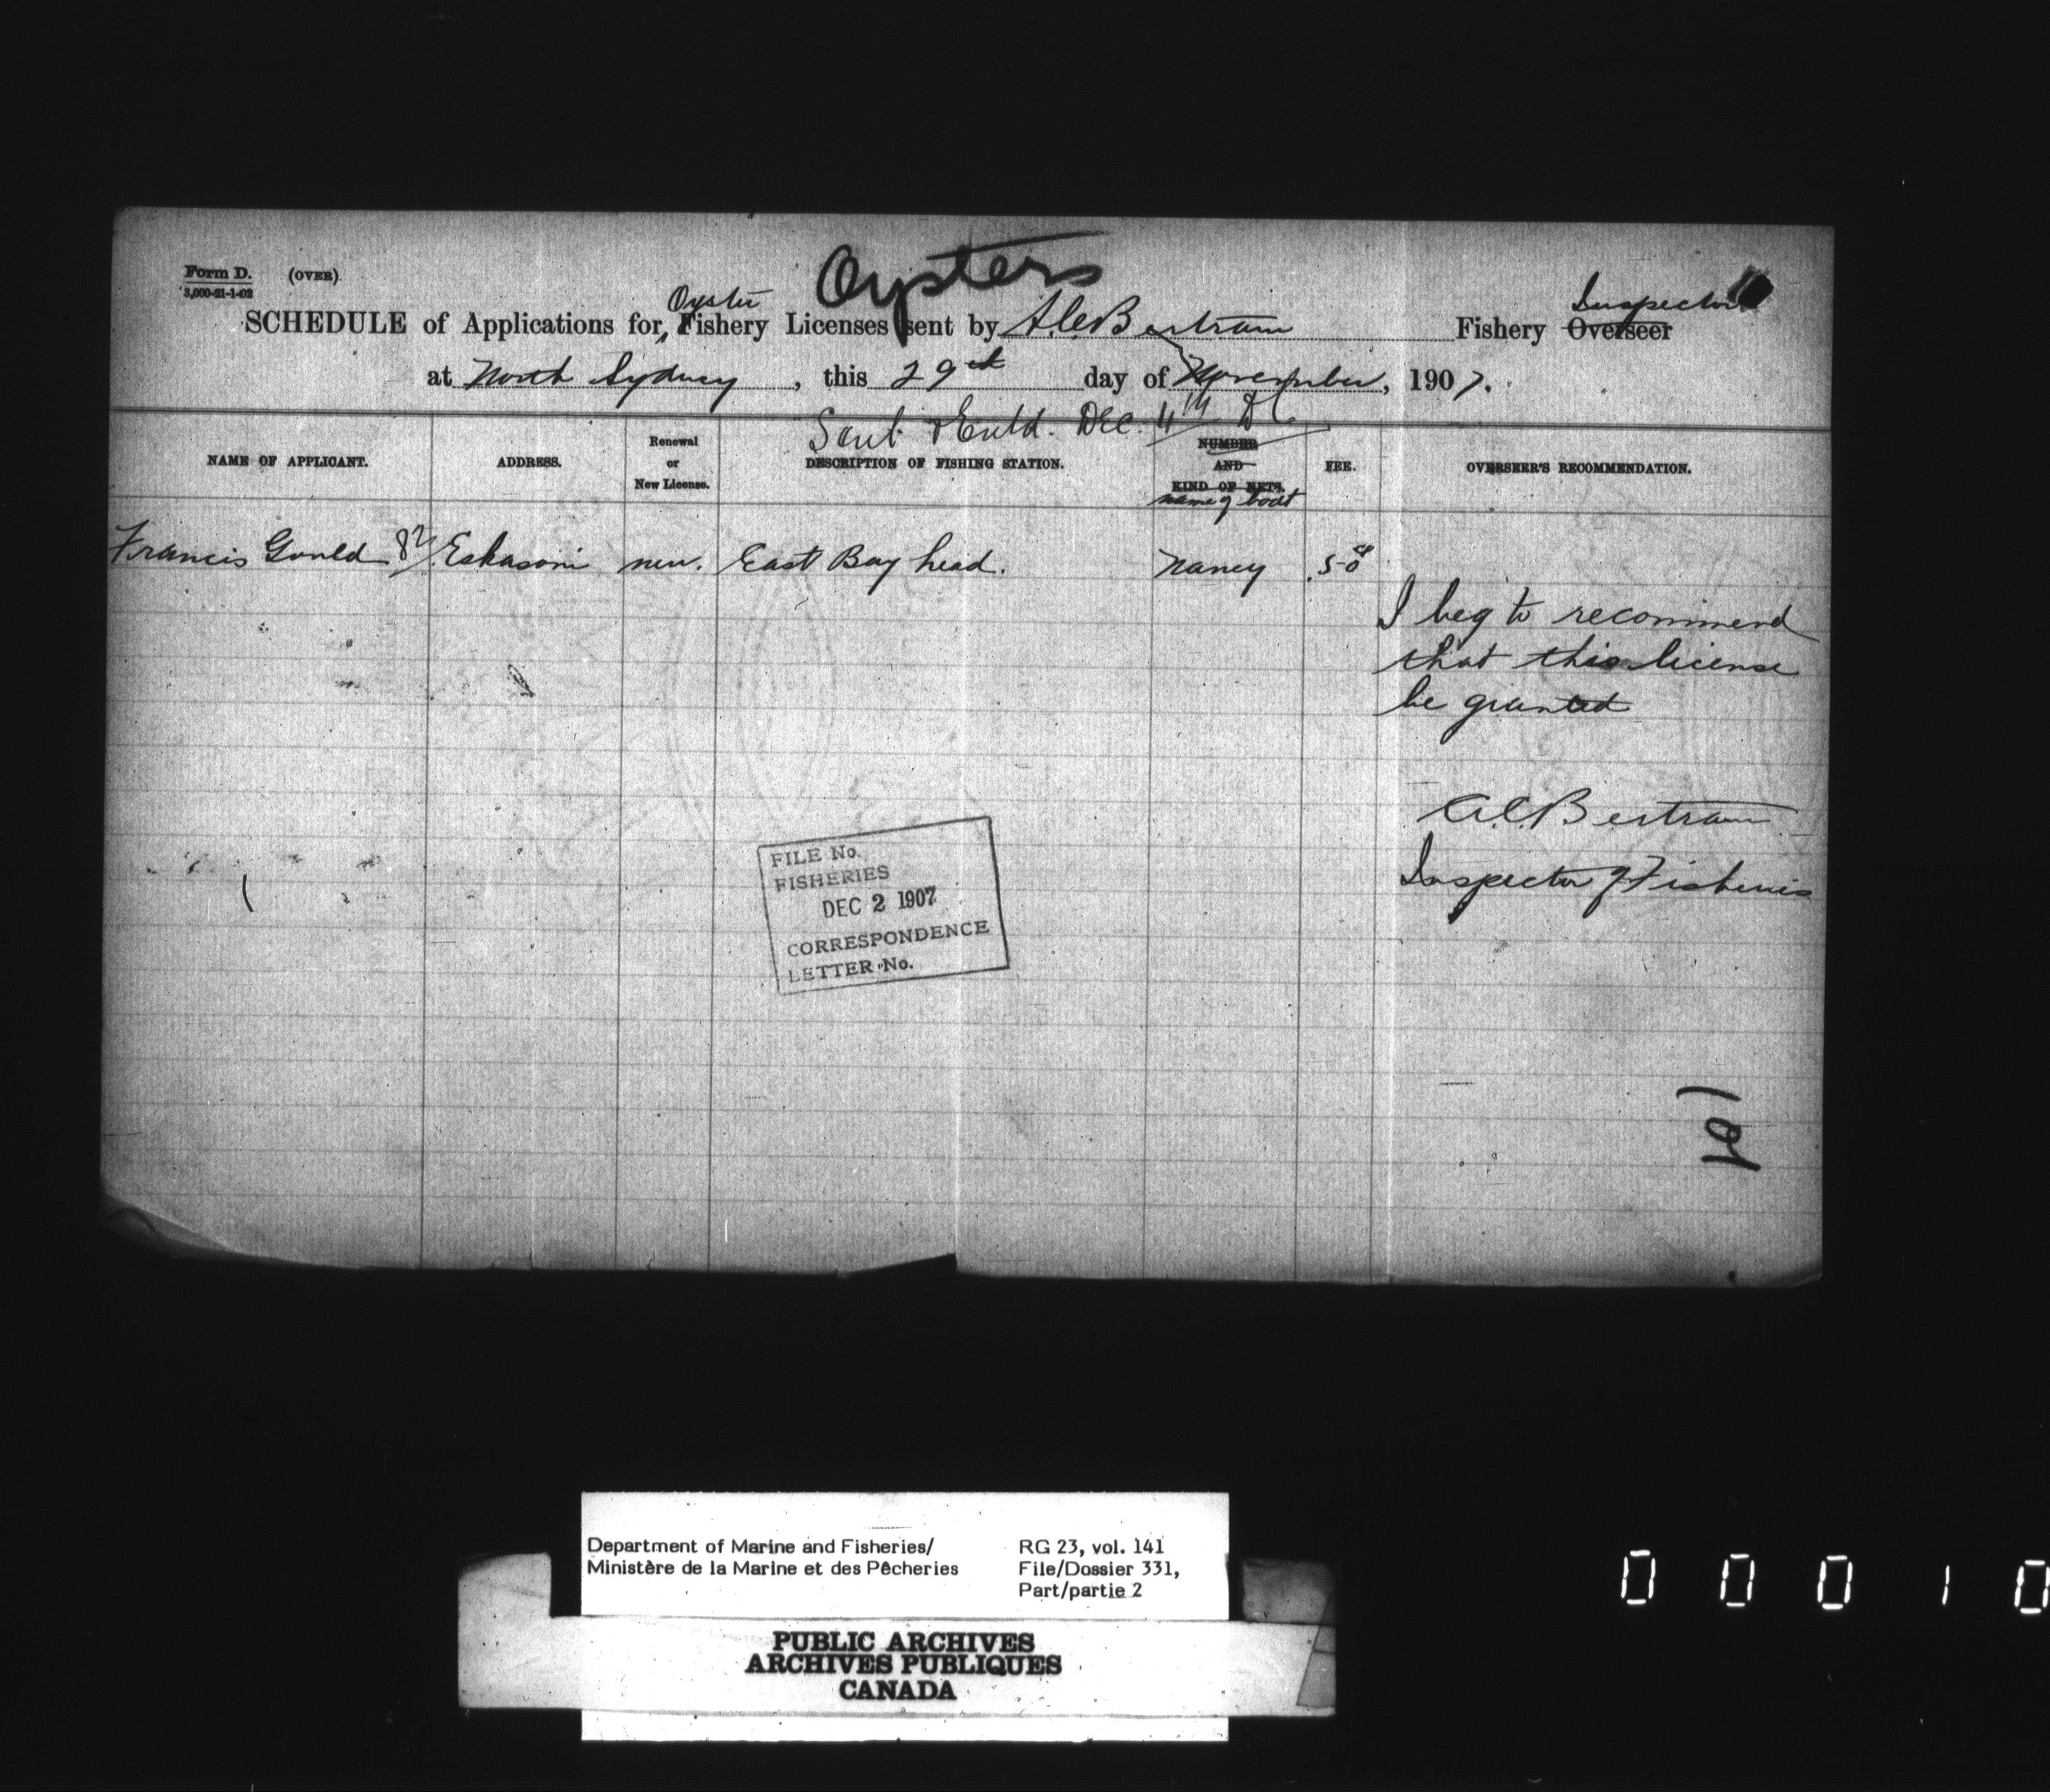 Oysters
Form D. (OVER)
3,000-21-1-02
Oyster
Inspector
SCHEDULE of Applications for Fishery Licenses sent by A.C. Bertram Fishery Overseer
at North Sydney, this 29th day of November, 1907.
Dec. 4th
NAME OF APPLICANT. ADDRESS. Renewal or New License. DESCRIPTION OF FISHING STATION. NUMBER AND KIND OF NETS. FEE. OVERSEER'S RECOMMENDATION.
name of boat
Francis Gould 82/ Eskasoni new. East Bay head. Nancy .50
I beg to recommend
that this license
be granted
A.C. Bertram
Inspector of Fisheries
FILE No.
FISHERIES
DEC 2 1907
CORRESPONDENCE
LETTER No.
101
Department of Marine and Fisheries/ RG 23, vol. 141
Ministère de la Marine et des Pêcheries File/Dossier 331,
Part/partie 2
PUBLIC ARCHIVES
ARCHIVES PUBLIQUES
CANADA
0 0 0 1 0